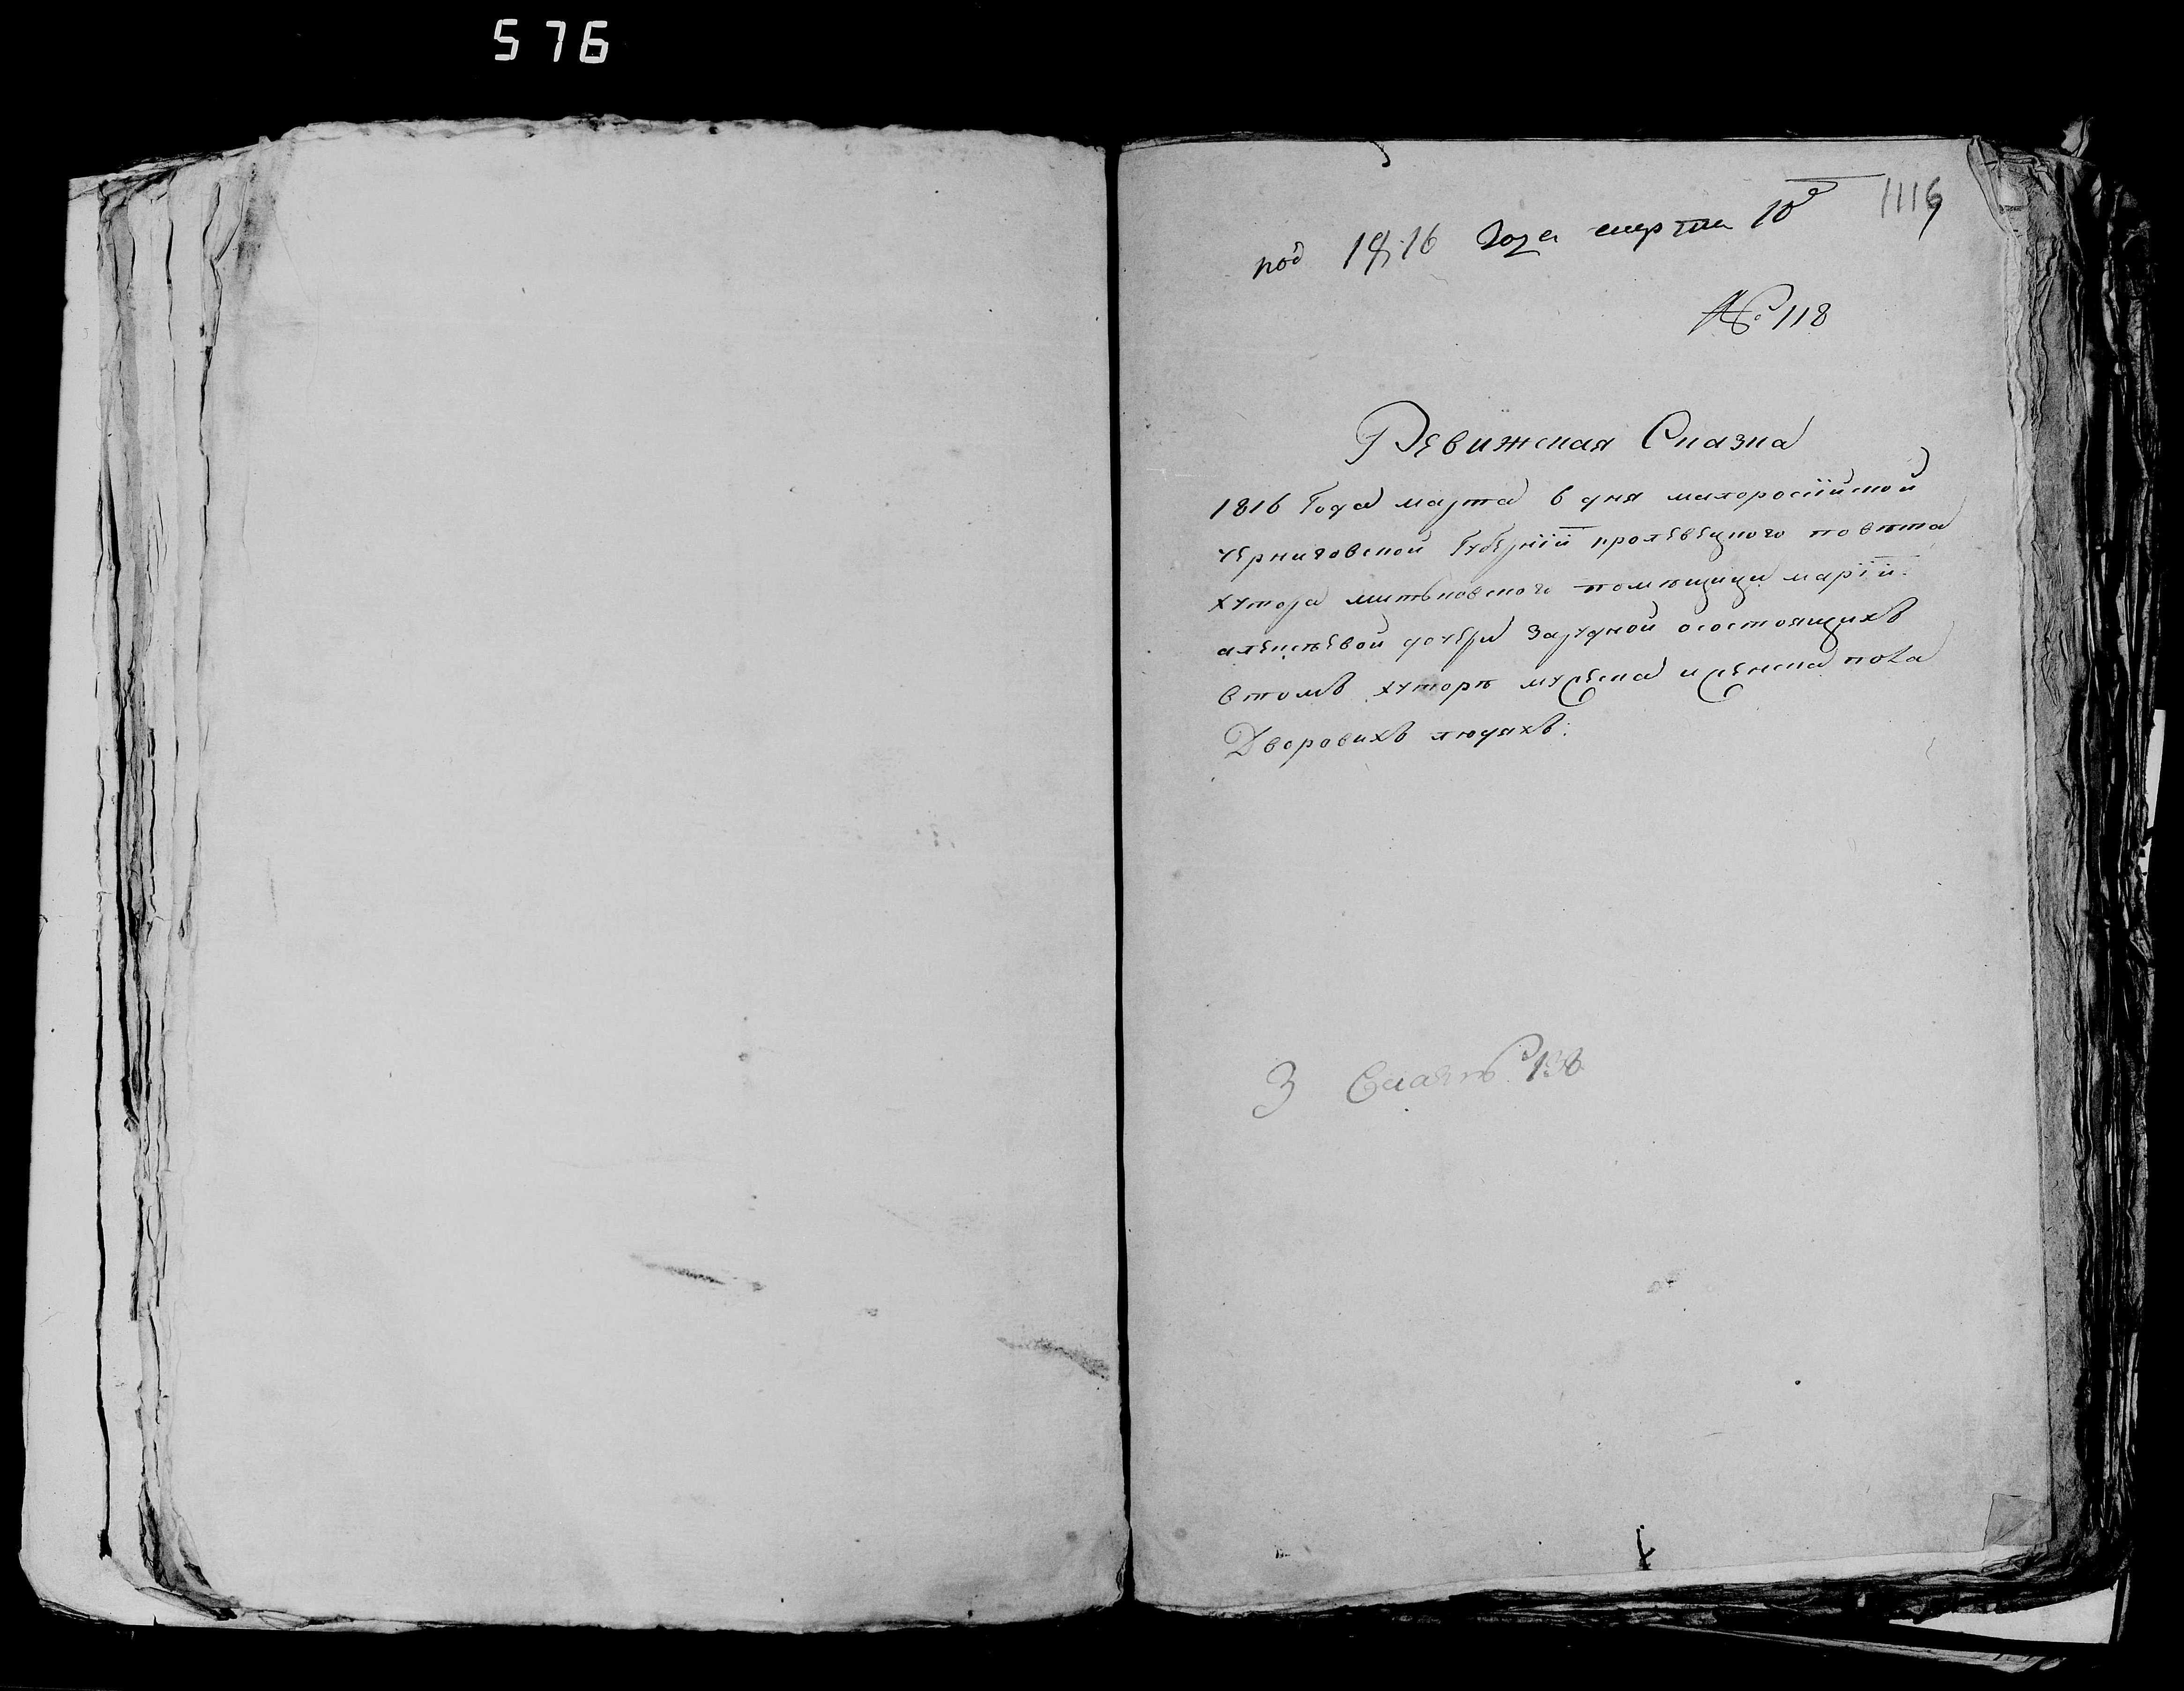 576
1116
под 1816 года марта 10д
№ 118
Ревижская Сказка
1816 Года марта 6 дня малоросiйской
черниговской Губернiи кролевецкого повѣта
хутора митьковского помѣщици марiи
алексѣевой дочери Зарудной осостоящихъ
втомъ хуторѣ муҗеска иженска пола
Дворовихъ людяхъ:
3